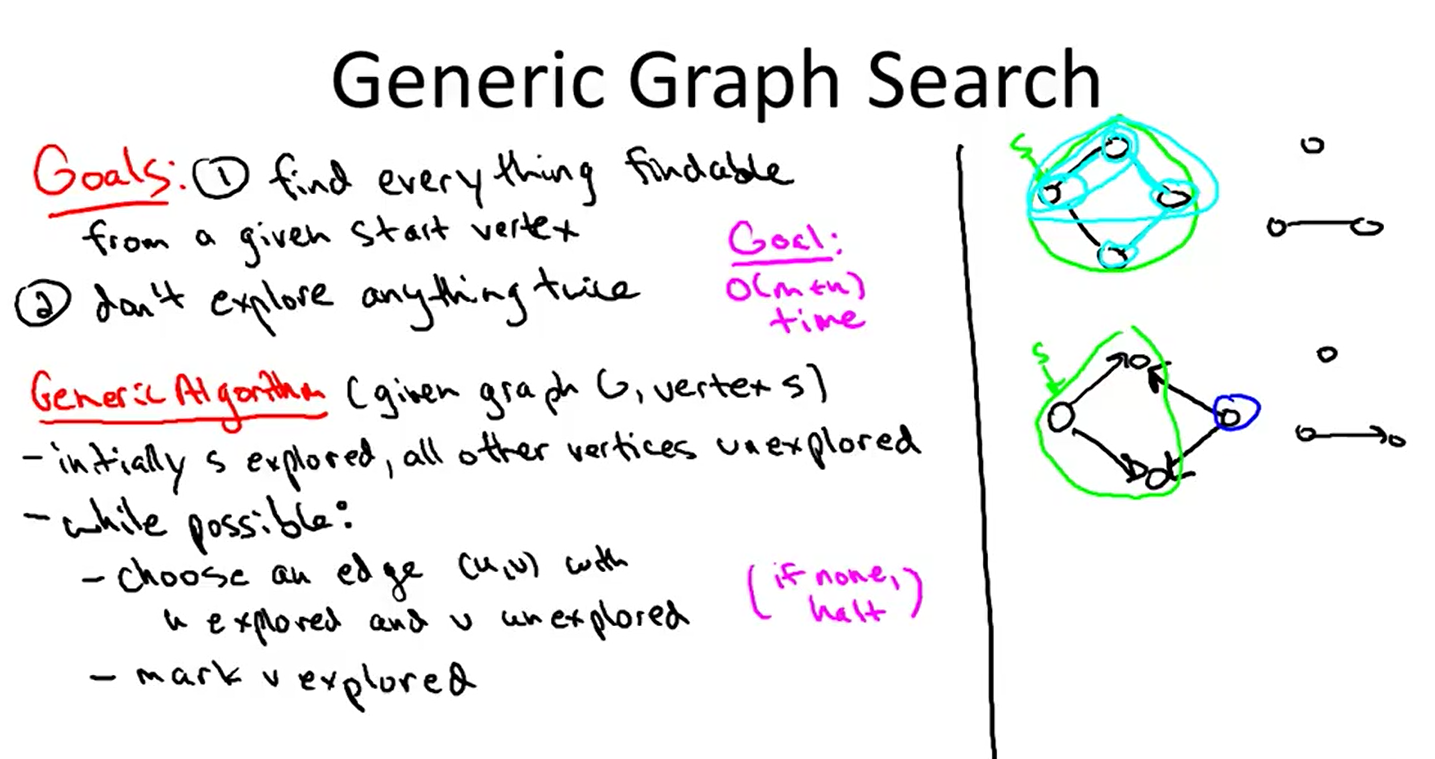 Generic Graph Search
Goals: ① find everything findable
from a given start vertex
② don't explore anything twice
Goal:
O(m+n)
time
Generic Algorithm (given graph G, vertex s)
- initially s explored, all other vertices unexplored
- while possible:
- choose an edge (u,v) with
u explored and v unexplored
(if none,
halt)
- mark v explored
s
s